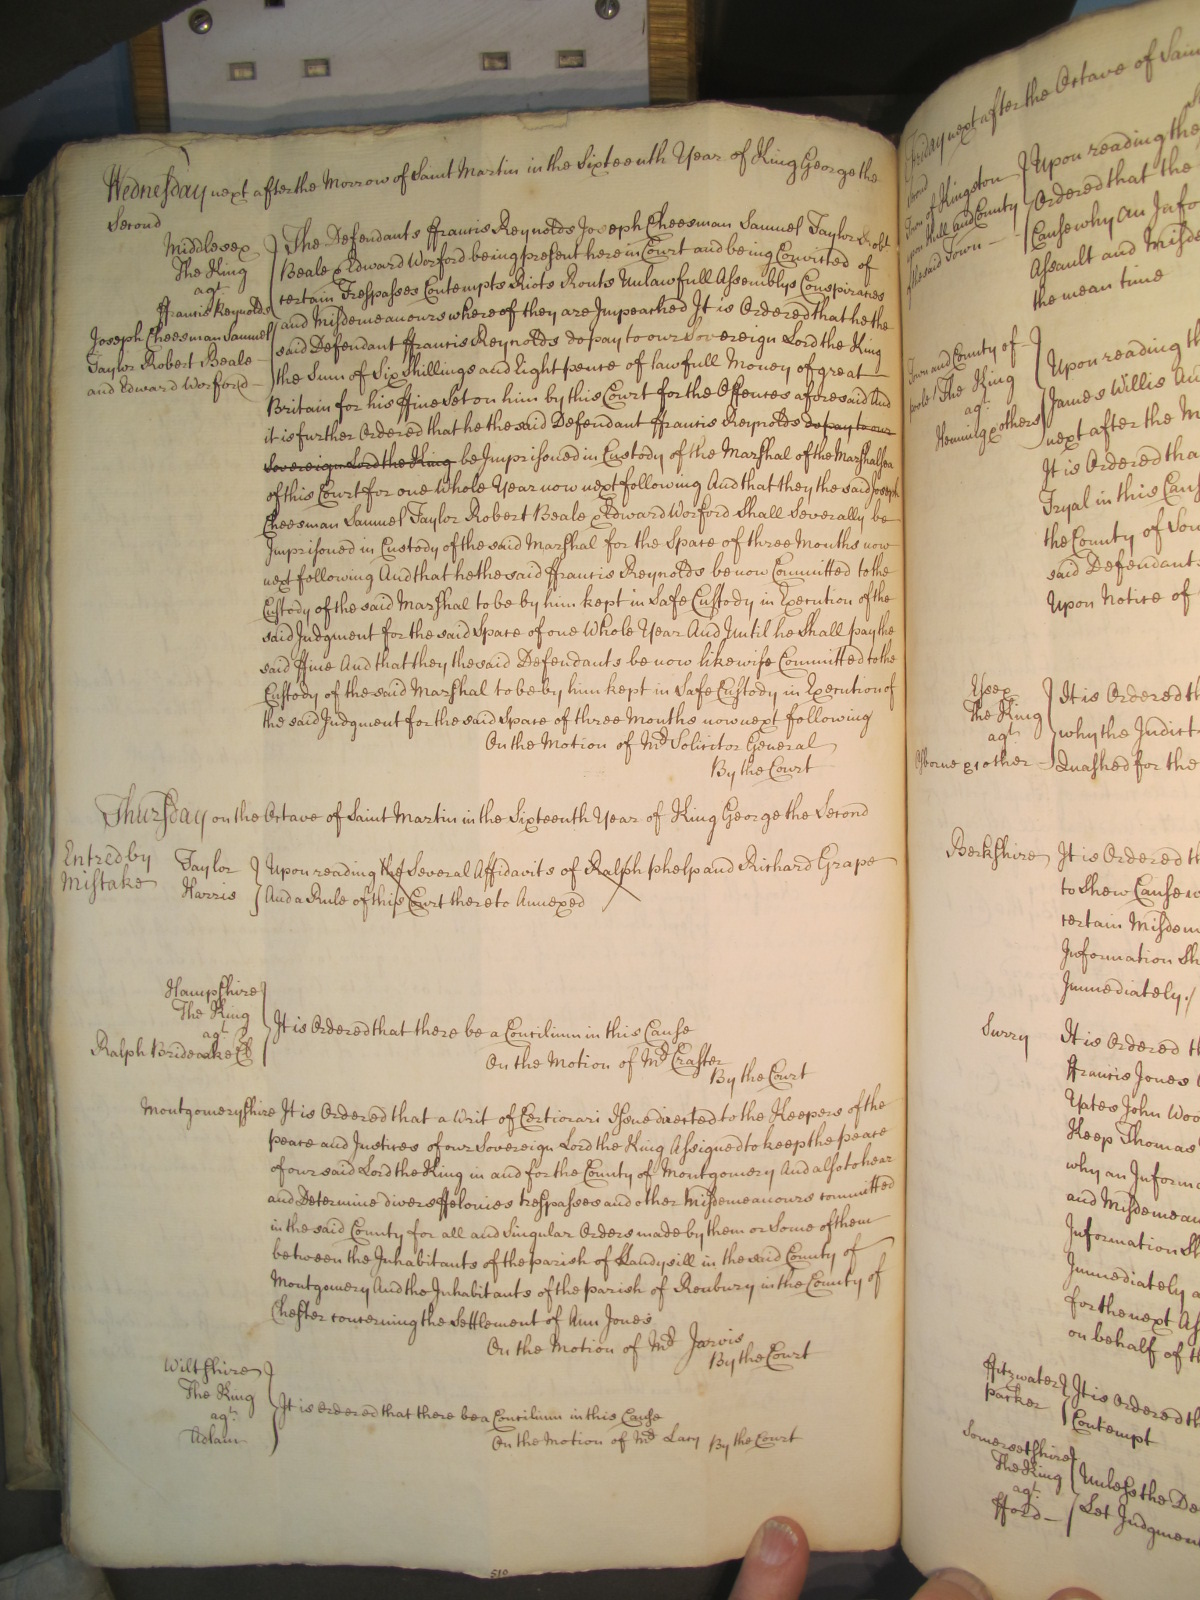 Wednesday next after the Morrow of Saint Martin in the Sixteenth Year of King George the
Second
Middlesex
The King
agt
ffrancis Reynolds
Joseph Cheesman Samuel
Taylor Robert Beale
and Edward Worford
The Defendants ffrancis Reynolds Joseph Cheesman Samuel Taylor Robt
Beale & Edward Worford being present here in Court and being Convicted of
certain Trespasses Contempts Riots Routs Unlawfull Assemblys Conspiracies
and Misdemeanours where of they are Impeached It is Ordered that he the
said Defendant ffrancis Reynolds do pay to our Sovereign Lord the King
the Sum of Six Shillings and Eight pence of lawfull Money of great
Britain for his ffine Set on him by this Court for the Offences aforesaid And
it is further Ordered that he the said Defendant ffrancis Reynolds do pay to our
Sovereign Lord the King be Imprisoned in Custody of the Marshal of the Marshalsea
of this Court for one Whole Year now next following And that they the said Joseph
Cheesman Samuel Taylor Robert Beale & Edward Worford Shall Severally be
Imprisoned in Custody of the said Marshal for the Space of three Months now
next following And that he the said ffrancis Reynolds be now Committed to the
Custody of the said Marshal to be by him kept in Safe Custody in Execution of the
said Judgment for the said Space of one Whole Year And Until he Shall pay the
said ffine And that they the said Defendants be now likewise Committed to the
Custody of the said Marshal to be by him kept in Safe Custody in Execution of
the said Judgment for the said Space of three Months now next following
On the Motion of Mr Solicitor General
By the Court
Thursday on the Octave of Saint Martin in the Sixteenth Year of King George the Second
Entred by
Mistake
Taylor
Harris
Upon reading the Several Affidavits of Ralph phelp and Richard Grape
And a Rule of this Court thereto Annexed
Hampshire
The King
agt
Ralph Brideoake
It is Ordered that there be a Concilium in this Cause
On the Motion of Mr Craster
By the Court
Montgomeryshire It is Ordered that a Writ of Certiorari Issue directed to the Keepers of the
peace and Justices of our Sovereign Lord the King Assigned to keep the peace
of our said Lord the King in and for the County of Montgomery And also to hear
and Determine divers ffelonies trespasses and other Misdemeanours committed
in the said County for all and Singular Orders made by them or Some of them
between the Inhabitants of the parish of Llandysill in the said County of
Montgomery And the Inhabitants of the parish of Renbury in the County of
Chester concerning the Settlement of Ann Jones
On the Motion of Mr Jarvis
By the Court
Wiltshire
The King
agt
Adlam
It is ordered that there be a Concilium in this Cause
On the Motion of Mr Lacy By the Court
510
Friday next after the Octave of Sain
Town of Kingston
upon Hull and County
of the said Town
Upon reading the
Ordered that the
Cause why An Info
Assault and Misde
the mean time
Town and County of
The King
agt
Henning & others
Upon reading th
James Willis An
next after the M
It is Ordered tha
Tryal in this Caus
the County of Sou
said Defendants
Upon Notice of
The King
agt
Osborne & other
It is Ordered th
why the Indict
Quashed for the
Berkshire It is Ordered th
to Shew Cause w
certain Misdem
Information Sh
Immediately
Surry It is Ordered th
ffrancis Jones
Yates John Woo
Keep Thomas
why an Informa
and Misdemean
Information Sh
Immediately a
for the next As
on behalf of th
ffitzwater
parker
It is Ordered th
Contempt
Somersetshire
The King
agt
fford
Unless the De
Let Judgment